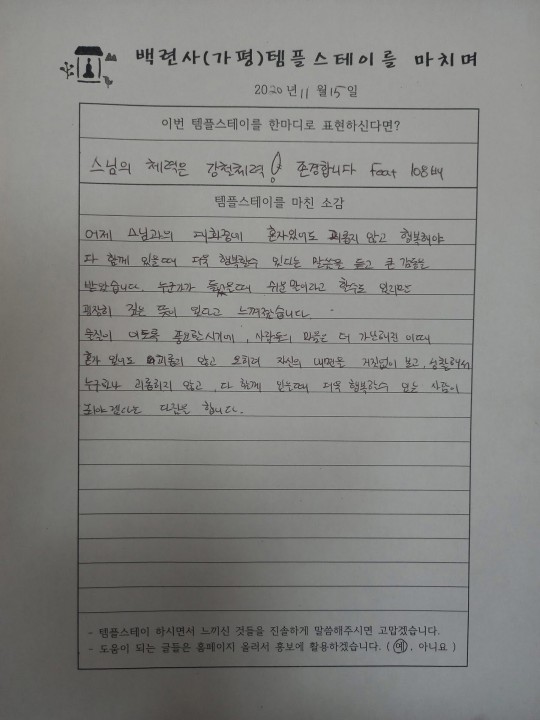 백련사(가평)템플스테이를 마치며
2020년 11월 15일
이번 템플스테이를 한마디로 표현하신다면?
스님의 체력은 강철체력! 존경합니다 feat 108배
템플스테이를 마친 소감
어제 스님과의 대화중에 혼자있어도 외롭지 않고 행복해야
다 함께 있을때 더욱 행복할수 있다는 말씀을 듣고 큰 감동을
받았습니다. 누군가가 들었을때 쉬운말이라고 할수도 있지만
굉장히 깊은 뜻이 있다고 느껴졌습니다.
물질이 더도록 풍요로운시기에, 사람들의 마음은 더 가난해진 이때
혼자 있어도 외롭게 않고 오히려 자신의 내면을 거짓없이 보고, 성찰해서
누구하나 외롭히지 않고, 다 함께 있을때 더욱 행복할수 있는 사람이
되야 겠다는 다짐을 합니다.
- 템플스테이 하시면서 느끼신 것들을 진솔하게 말씀해주시면 고맙겠습니다.
- 도움이 되는 글들은 홈페이지 올려서 홍보에 활용하겠습니다. ( 예, 아니요 )